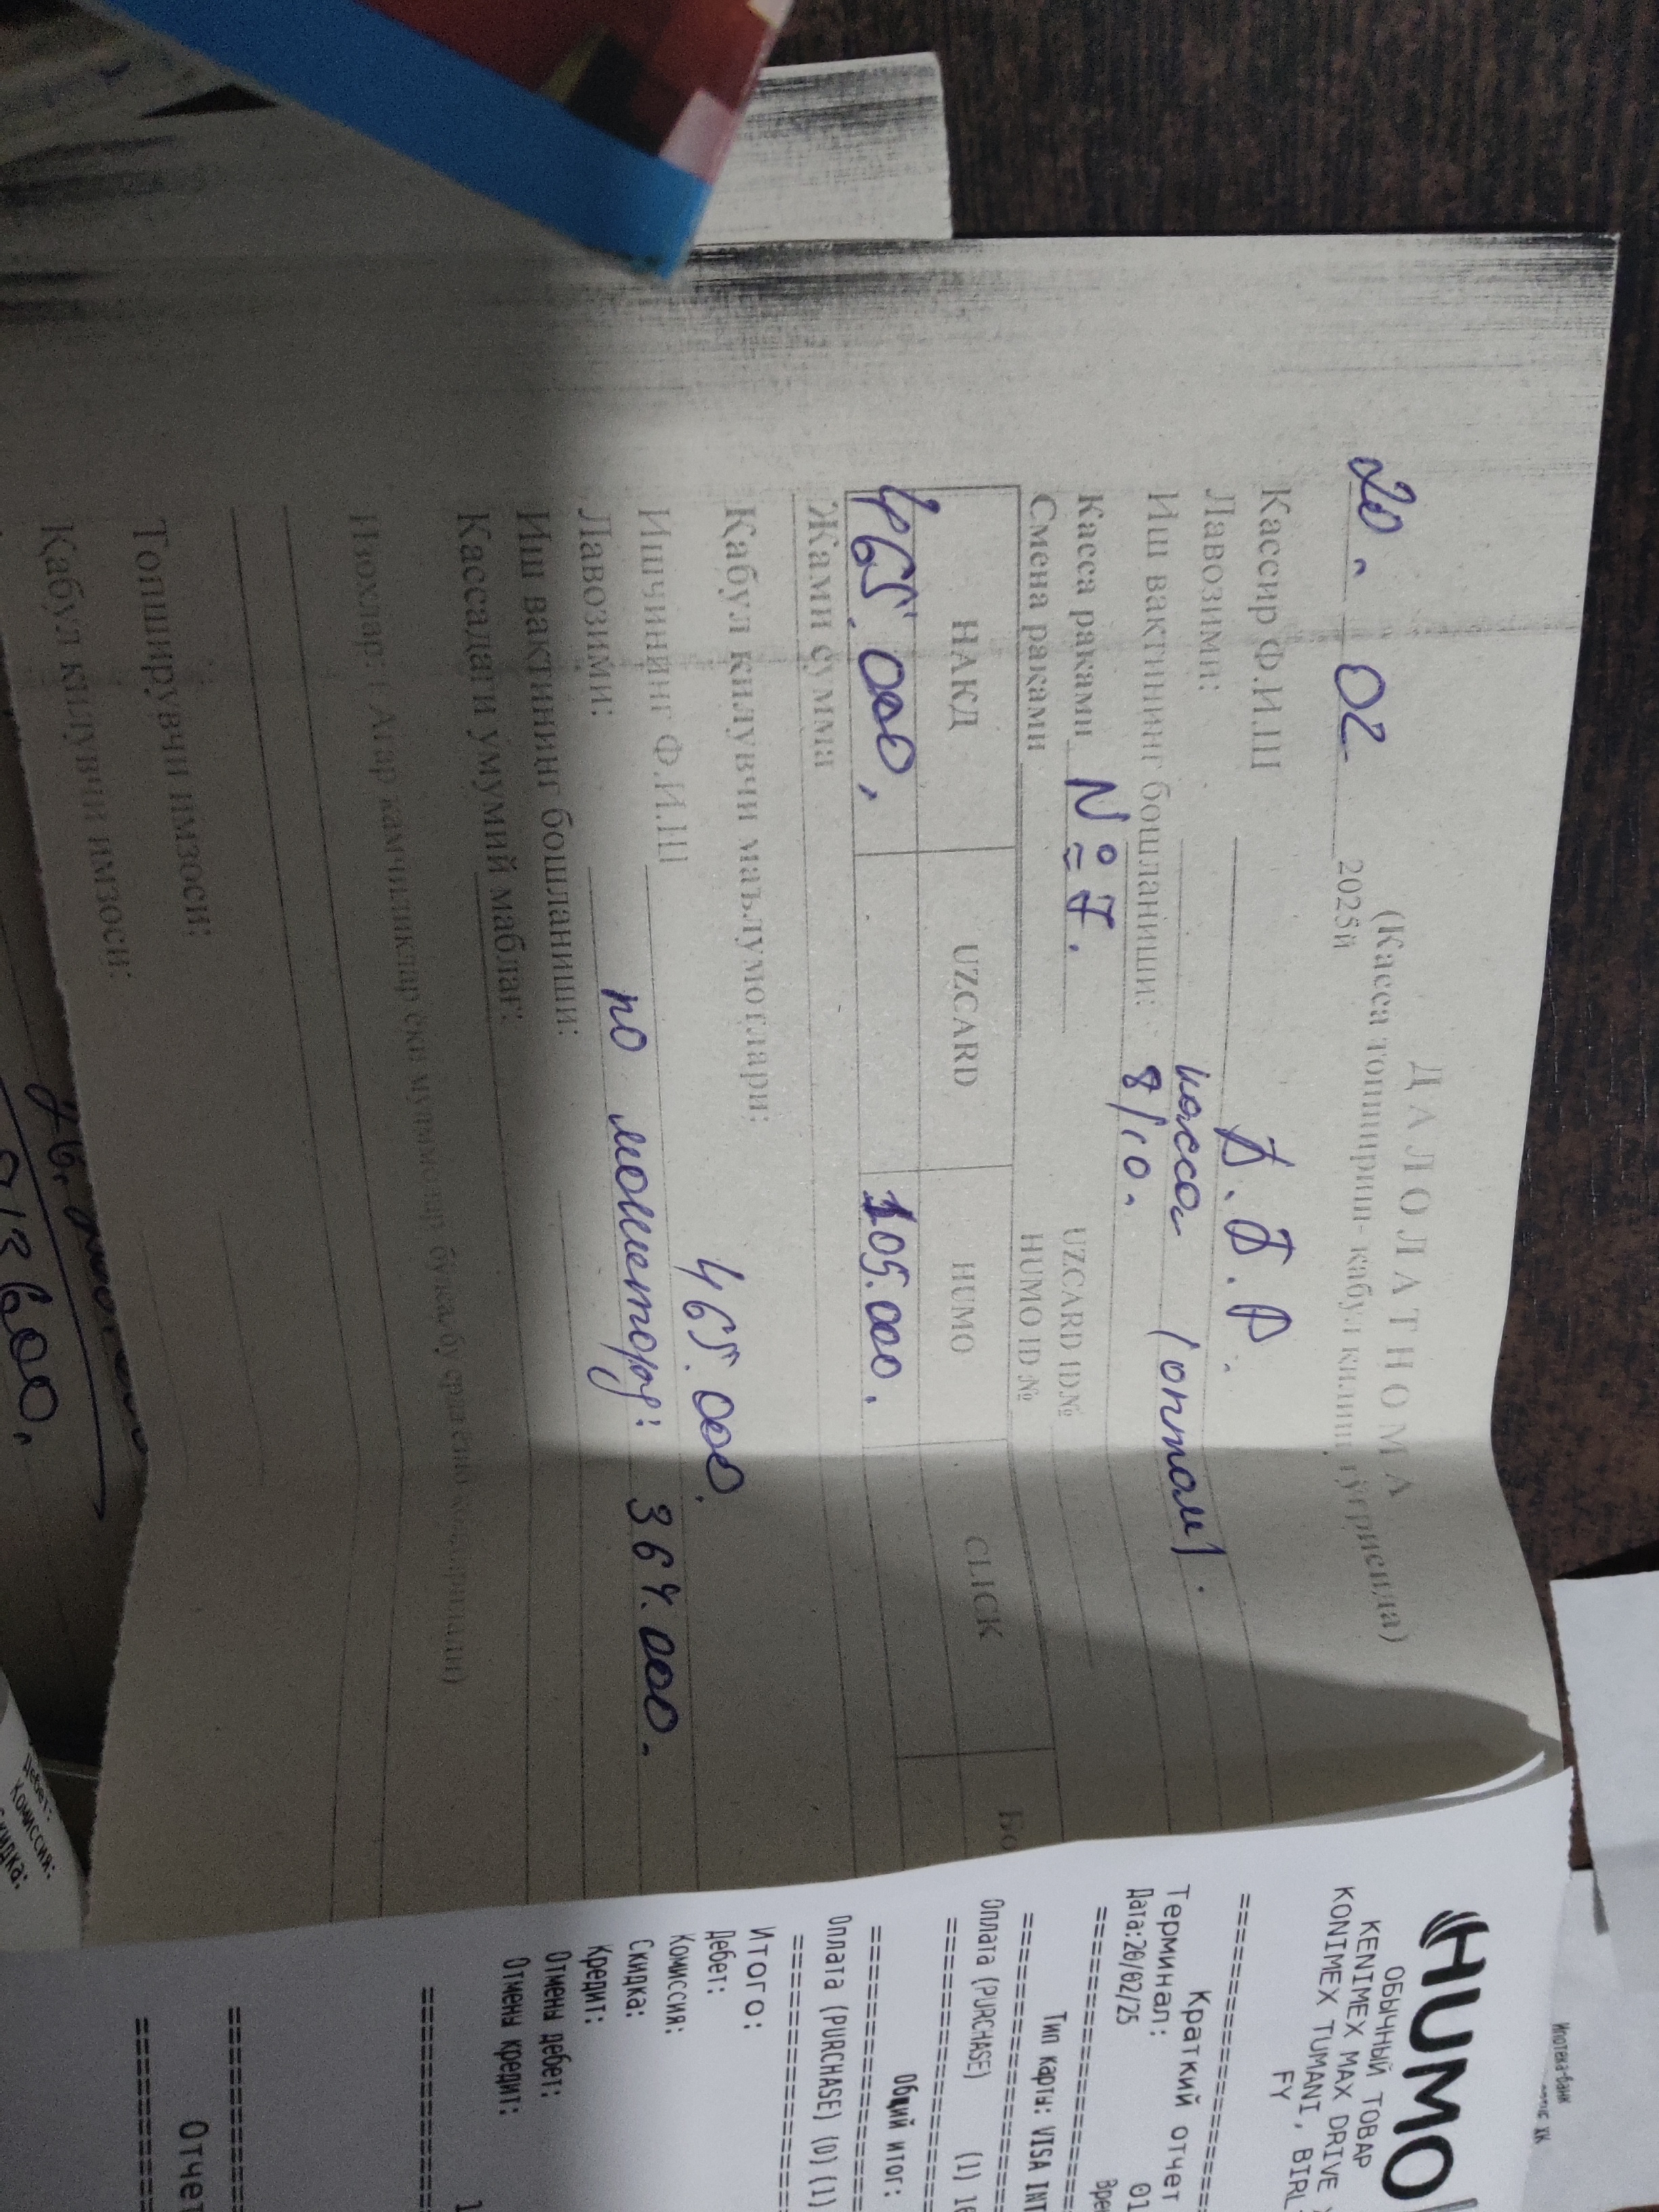 ДАЛОЛАТНОМА
(Касса топшириш- кабул килиш тугрисида)
20. 02 2025й
Кассир Ф.И.Ш
Лавозими: касса (оптом).
Иш вактининг бошланиши: 8/10.
Касса раками №7. UZCARD ID№
Смена раками HUMO ID №
НАКД UZCARD HUMO CLICK
465.000. 105.000.
Жами сумма
Кабул килувчи маълумотлари: 465.000.
Ишчининг Ф.И.Ш
Лавозими: по монитору: 364.000.
Иш вактининг бошланиши:
Кассадаги умумий маблаг:
Изохлар: ( Агар камчиликлар ёки муаммолар булса, бу ерда
Топширувчи имзоси:
Кабул килувчи имзоси:
600.
HUMO
ОБЫЧНЫЙ ТОВАР
KENIMEX MAX DRIVE
KONIMEX TUMANI, BIRL
FY
Краткий отчет
Терминал: 01
Дата:20/02/25 Вре
Тип карты: VISA INT
Оплата (PURCHASE) (1)
Общий итог:
Оплата (PURCHASE) (D) (1)
Итого:
Дебет:
Комиссия:
Скидка:
Кредит:
Отмены дебет:
Отмены кредит:
Отчет
Ипотека-банк
Дебет:
Комиссия:
Скидка: